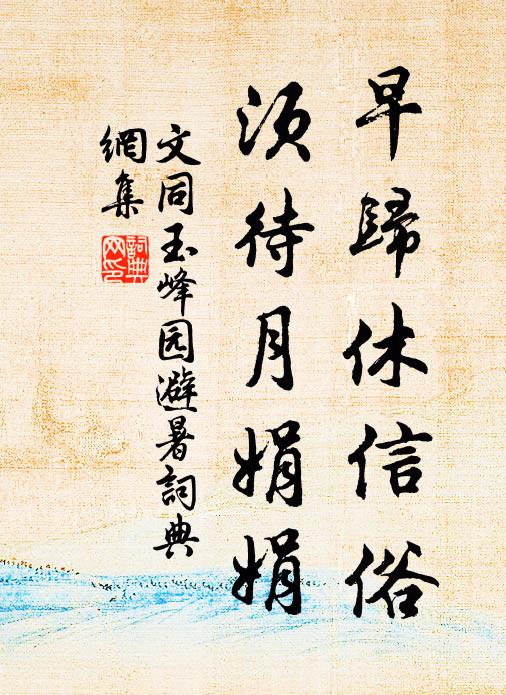 早歸休信俗
須待月娟娟
文同玉峰园避暑詞典
網集
詞典
网印